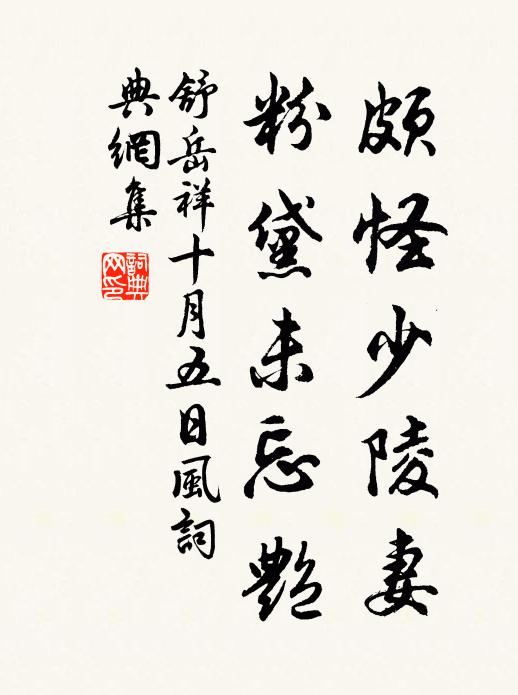 頗怪少陵妻
粉黛未忘艷
舒岳祥十月五日風詞
典網集
詞典網印